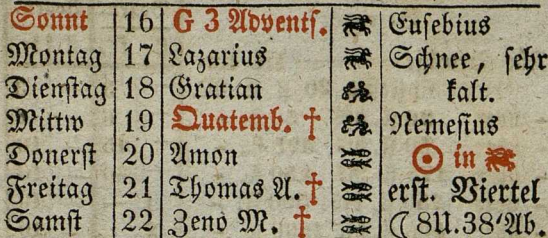 Sonnt 16 G 3 Advents. Eusebius
Montag 17 Lazarius Schnee, sehr
Dienstag 18 Gratian kalt.
Mittw 19 Quatemb. † Nemesius
Donerst 20 Amon ☉ in
Freitag 21 Thomas A. † erst. Viertel
Samst 22 Zeno M. † ☾ 8U.38'Ab.